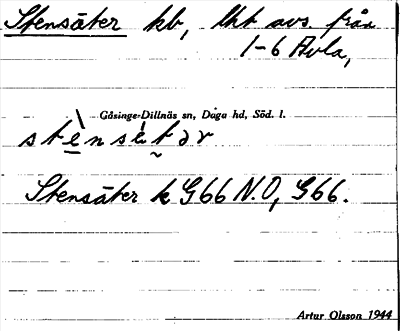 Stensäter kb, lht avs. från
1-6 Avla,
Gåsinge-Dillnäs sn, Daga hd, Söd. l.
Stensäter k G66 N.O, G66.
Artur Olsson 1944